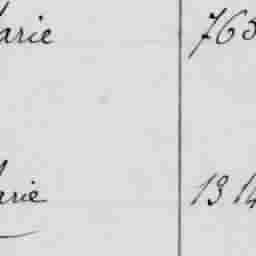 arie 765
arie 1314